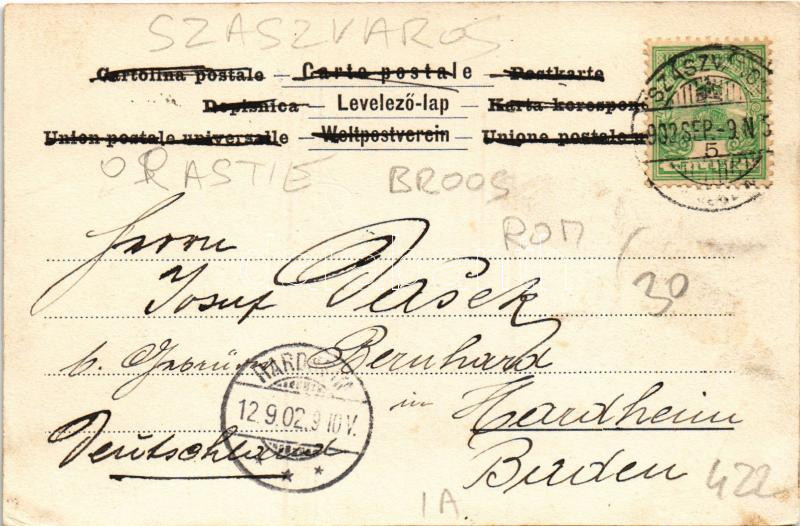 SZASZVAROS
Cartolina postale Carte postale Postkarte
Dopisnica Levelező-lap Karta korespon
Union postale universelle Weltpostverein Unione postale u
SZÁSZVÁROS
902 SEP.-9. N 5
5
ORASTIE BROOS
ROM
30
Herrn
Josef Vašek
b. Gebrüder Bernhard
in Hardheim
Deutschland Baden
HARDHEIM
12.9.02.9-10V.
1A
422